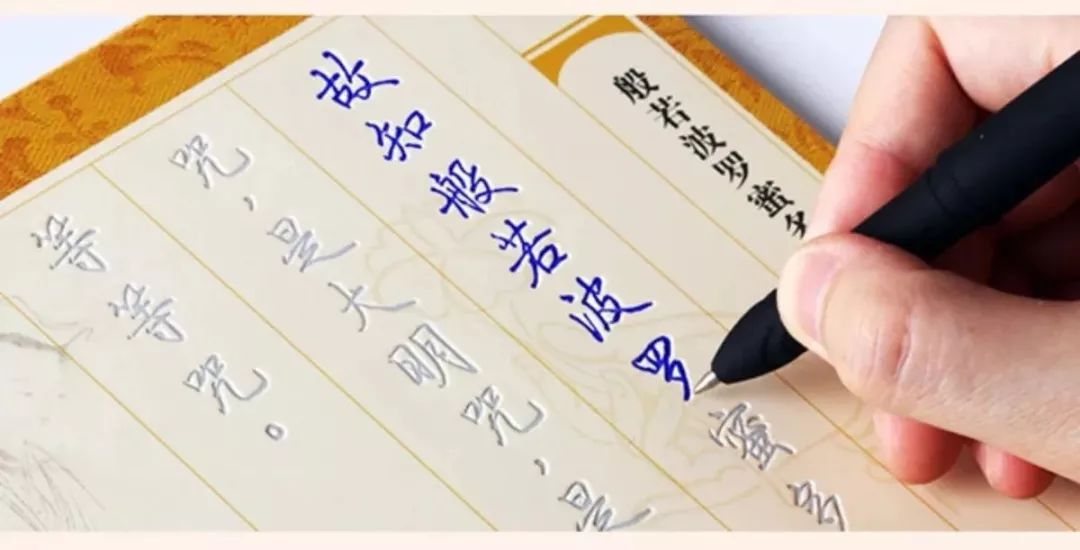 般若波罗蜜多
故知般若波罗蜜多
咒，是大明咒，是
等等咒。